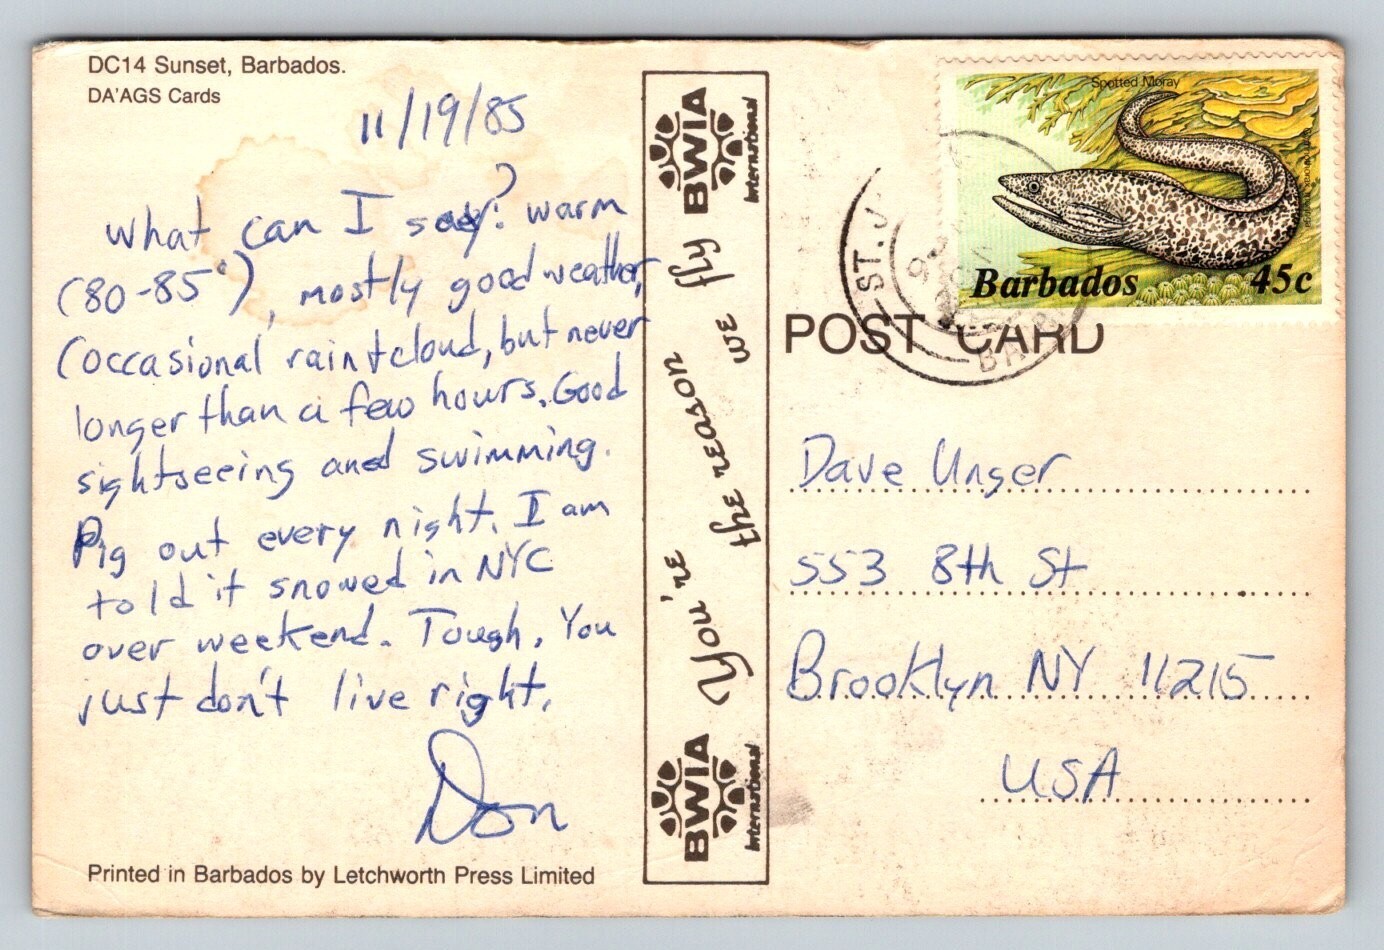 DC14 Sunset, Barbados.
DA'AGS Cards
11/19/85
What can I say? warm
(80-85°), mostly good weather,
(occasional rain + cloud, but never
longer than a few hours. Good
sightseeing and swimming.
Pig out every night. I am
told it snowed in NYC
over weekend. Tough. You
just don't live right.
Don
Printed in Barbados by Letchworth Press Limited
BWIA
International
You're the reason we fly
BWIA
International
Spotted Moray
Barbados 45c
ST. J
BA
POST CARD
Dave Unger
553 8th St
Brooklyn NY 11215
USA